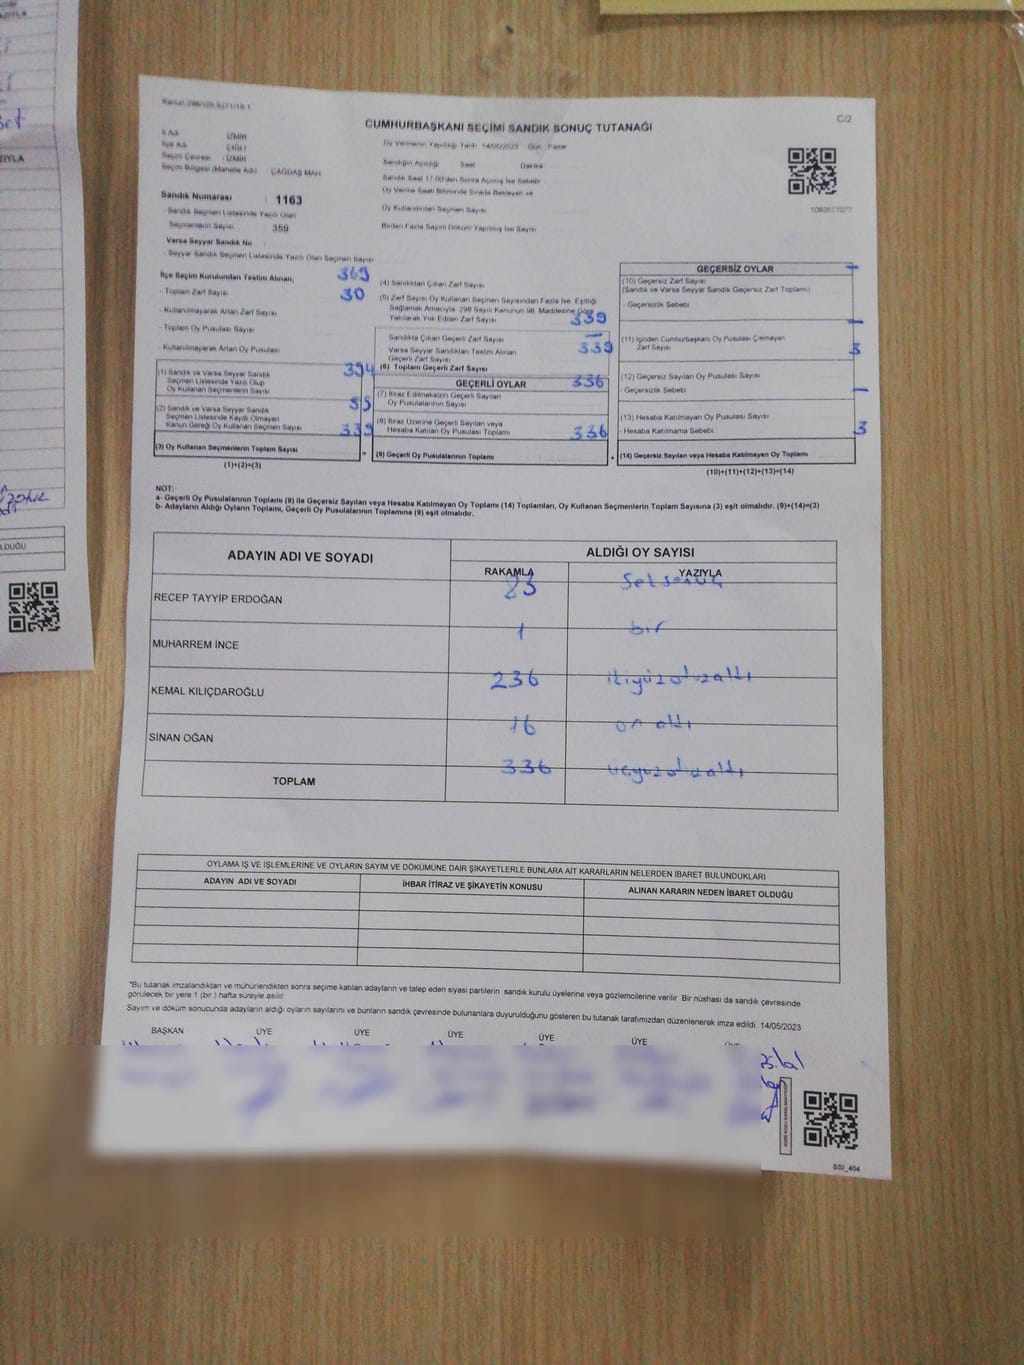 CUMHURBAŞKANI SEÇİMİ SANDIK SONUÇ TUTANAĞI
C/2
İl Adı İZMİR
İlçe Adı ÇİĞLİ
Seçim Çevresi : İZMİR
Seçim Bölgesi (Mahalle Adı) ÇAĞDAŞ MAH
Sandık Numarası : 1163
Sandık Seçmen Listesinde Yazılı Olan
Seçmenlerin Sayısı 359
Varsa Seyyar Sandık No
Seyyar Sandık Seçmen Listesinde Yazılı Olan Seçmen Sayısı
Oy Vermenin Yapıldığı Tarih 14/05/2023 Gün Pazar
Sandığın Açıldığı Saat Dakika
Sandık Saat 17.00'den Sonra Açılmış İse Sebebi
Oy Verme Saati Bitiminde Sırada Bekleyen ve
Oy Kullandırılan Seçmen Sayısı
Birden Fazla Sayım Döküm Yapılmış İse Sayısı
İlçe Seçim Kurulundan Teslim Alınan; 369
- Toplam Zarf Sayısı 30
- Kullanılmayarak Artan Zarf Sayısı
- Toplam Oy Pusulası Sayısı
- Kullanılmayarak Artan Oy Pusulası
(1) Sandık ve Varsa Seyyar Sandık
Seçmen Listesinde Yazılı Olup
Oy Kullanan Seçmenlerin Sayısı
(2) Sandık ve Varsa Seyyar Sandık
Seçmen Listesinde Kayıtlı Olmayan
Kanun Gereği Oy Kullanan Seçmen Sayısı 339
(3) Oy Kullanan Seçmenlerin Toplam Sayısı
(1)+(2)=(3)
(4) Sandıktan Çıkan Zarf Sayısı
(5) Zarf Sayısı Oy Kullanan Seçmen Sayısından Fazla İse, Eşitliği
Sağlamak Amacıyla, 298 Sayılı Kanunun 98. Maddesine Göre
Yakılarak Yok Edilen Zarf Sayısı 339
Sandıkta Çıkan Geçerli Zarf Sayısı –
Varsa Seyyar Sandıktan Teslim Alınan 339
Geçerli Zarf Sayısı
(6) Toplam Geçerli Zarf Sayısı
GEÇERLİ OYLAR 336
(7) İtiraz Edilmeksizin Geçerli Sayılan
Oy Pusulalarının Sayısı
(8) İtiraz Üzerine Geçerli Sayılan veya
Hesaba Katılan Oy Pusulası Toplamı 336
= (9) Geçerli Oy Pusulalarının Toplamı
GEÇERSİZ OYLAR –
(10) Geçersiz Zarf Sayısı
(Sandık ve Varsa Seyyar Sandık Geçersiz Zarf Toplamı)
- Geçersizlik Sebebi
–
(11) İçinden Cumhurbaşkanı Oy Pusulası Çıkmayan
Zarf Sayısı 3
(12) Geçersiz Sayılan Oy Pusulası Sayısı
- Geçersizlik Sebebi –
(13) Hesaba Katılmayan Oy Pusulası Sayısı
- Hesaba Katılmama Sebebi 3
+ (14) Geçersiz Sayılan veya Hesaba Katılmayan Oy Toplamı
(10)+(11)+(12)+(13)=(14)
NOT:
a- Geçerli Oy Pusulalarının Toplamı (9) ile Geçersiz Sayılan veya Hesaba Katılmayan Oy Toplamı (14) Toplamları, Oy Kullanan Seçmenlerin Toplam Sayısına (3) eşit olmalıdır. (9)+(14)=(3)
b- Adayların Aldığı Oyların Toplamı, Geçerli Oy Pusulalarının Toplamına (9) eşit olmalıdır.
ADAYIN ADI VE SOYADI ALDIĞI OY SAYISI
RAKAMLA YAZIYLA
RECEP TAYYİP ERDOĞAN
1 bir
MUHARREM İNCE
236 ikiyüzotuzaltı
KEMAL KILIÇDAROĞLU
16 on altı
SİNAN OĞAN
336 üçyüzotuzaltı
TOPLAM
OYLAMA İŞ VE İŞLEMLERİNE VE OYLARIN SAYIM VE DÖKÜMÜNE DAİR ŞİKAYETLERLE BUNLARA AİT KARARLARIN NELERDEN İBARET BULUNDUKLARI
ADAYIN ADI VE SOYADI İHBAR İTİRAZ VE ŞİKAYETİN KONUSU ALINAN KARARIN NEDEN İBARET OLDUĞU
"Bu tutanak imzalandıktan ve mühürlendikten sonra seçime katılan adayların ve talep eden siyasi partilerin sandık kurulu üyelerine veya gözlemcilerine verilir. Bir nüshası da sandık çevresinde
görülecek bir yere 1 (bir ) hafta süreyle asılır.
Sayım ve döküm sonucunda adayların aldığı oyların sayılarını ve bunların sandık çevresinde bulunanlara duyurulduğunu gösteren bu tutanak tarafımızdan düzenlenerek imza edildi. 14/05/2023
BAŞKAN ÜYE ÜYE ÜYE ÜYE ÜYE ÜYE
SSI_404